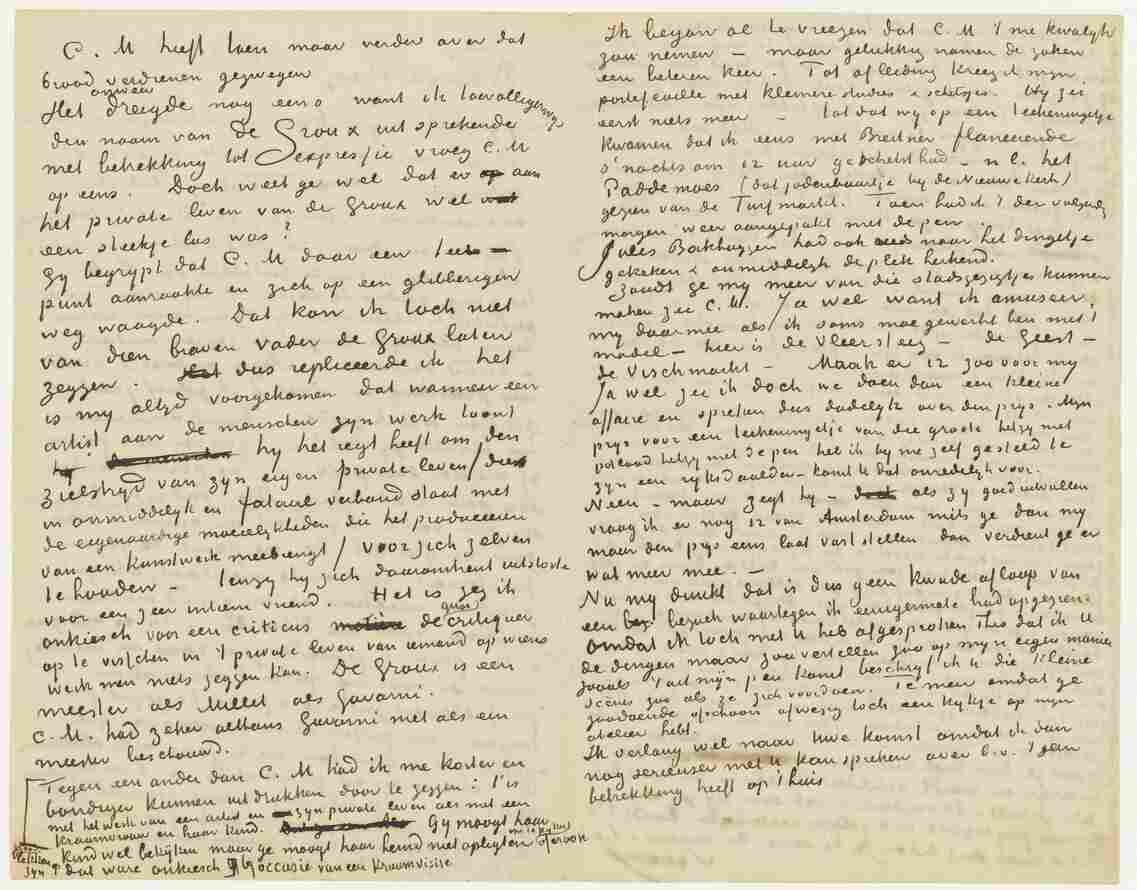 C. M heeft toen maar verder over dat
brood verdienen gezwegen
onweer
Het dreigde nog eens want ik toevalligerwijs
den naam van de Groux uitsprekende
met betrekking tot expressie vroeg C.M
op eens. Doch weet ge wel dat er op aan
het private leven van de Groux wel wat
een steekje los was?
Gy begrypt dat C. M daar een teer –
punt aanraakte en zich op een glibberigen
weg waagde. Dat kon ik toch niet
van dien braven vader de Groux laten
zeggen. Het dus repliceerde ik het
is my altyd voorgekomen dat wanneer een
artist aan de menschen zyn werk toont
hy de menschen hy het regt heeft om den
zielstryd van zyn eigen private leven / die
in onmiddelyk en fataal verband staat met
de eigenaardige moeielykheden die het produceeren
van een kunstwerk meebrengt / voor zich zelven
te houden – tenzy hy zich daaromtrent uitstorte
voor een zeer intiem vriend. Het is zeg ik
onkiesch voor een criticus de critiquer
quoi
op te visschen in 't private leven van iemand op wiens
werk men niets zeggen kan. De Groux is een
meester als Millet als Gavarni.
C.M. had zeker althans Gavarni niet als een
meester beschouwd.
Tegen een ander dan C. M had ik me korter en
bondiger kunnen uitdrukken door te zeggen: t'is
met het werk van een artist en zyn private leven als met een
kraamvrouw en haar kind. Gy moogt haar
kind wel bekyken maar ge moogt haar hemd niet opligten
dat ware onkiesch by occasie van een kraamvisite
Ik begon al te vreezen dat C.M 't me kwalyk
zou nemen – maar gelukkig namen de zaken
een beteren keer. Tot afleiding kreeg ik myn
portefeuille met kleinere studies & schetsjes. Hy zei
eerst niets meer – tot dat wy op een teekeningetje
kwamen dat ik eens met Breitner flaneerende
s'nachts om 12 uur geschetst had – n l. het
Paddemoes (dat jodenbuurtje by de Nieuwe Kerk)
gezien van de Turfmarkt. Toen had ik 't den volgende
morgen weer aangepakt met de pen.
Jules Bakhuyzen had ook naar het dingetje
gekeken & onmiddelyk de plek herkend.
Zoudt ge my meer van die stadsgezigtjes kunnen
maken zei C.M. Ja wel want ik amuseer
my daarmee als ik soms moe gewerkt ben met 't
model – hier is de Vleersteeg – de Geest –
de Vischmarkt – Maak er 12 zoo voor my
Ja wel zei ik doch we doen dan een kleine
affaire en spreken dus dadelyk over den prys. Myn
prys voor een teekeningetje van die groote hetzy met
potlood hetzy met de pen heb ik by me zelf gesteld te
zyn een ryksdaalder – komt U dat onredelyk voor.
Neen – maar zegt hy – doch als zy goed uitvallen
vraag ik er nog 12 van Amsterdam mits ge dan my
maar den prys eens laat vaststellen dan verdient ge er
wat meer mee. –
Nu my dunkt dat is dus geen kwade afloop van
een bez bezoek waartegen ik eenigermate had opgezien.
omdat ik toch met U heb afgesproken Theo dat ik U
de dingen maar zou vertellen zoo op myn eigen manier
zooals 't uit mijn pen komt beschryf ik U die kleine
scenes zoo als ze zich voordoen. Te meer omdat ge
zoodoende ofschoon afwezig toch een kykje op myn
atelier hebt.
Ik verlang wel naar Uwe komst omdat ik dan
nog serieuser met U kan spreken over b.v. 't geen
betrekking heeft op 't huis